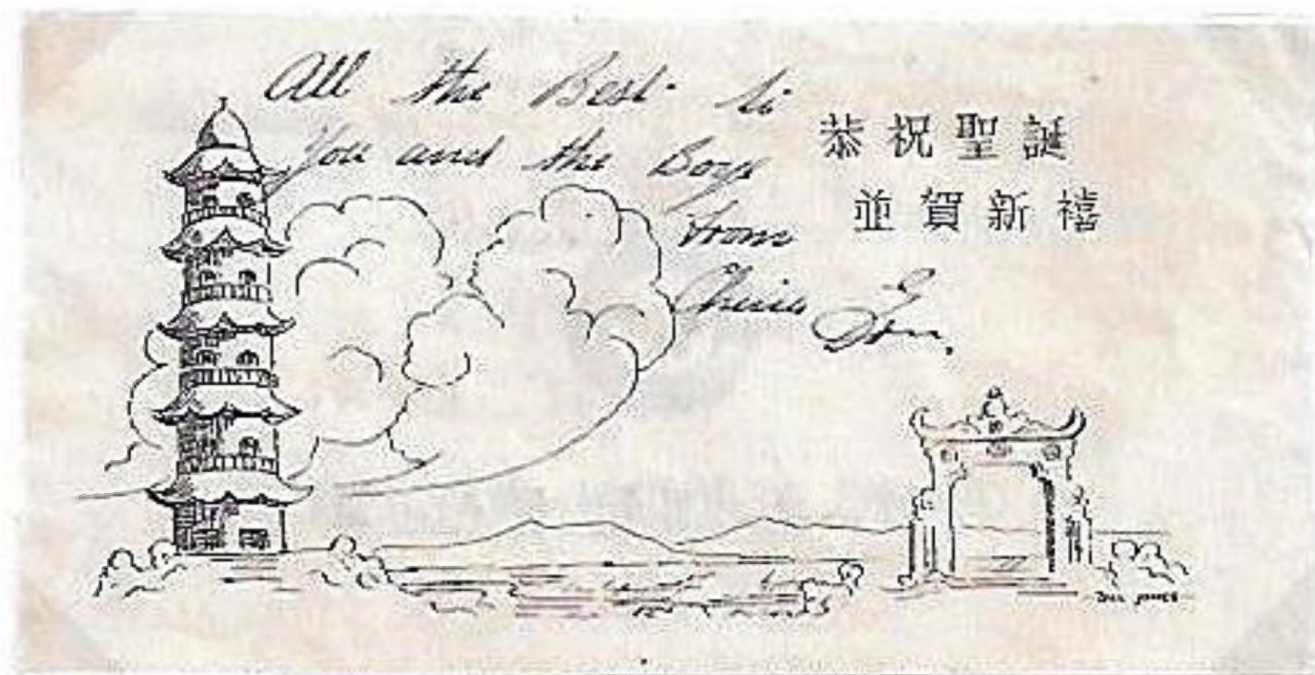 All the Best to
You and the Boys
from
恭祝聖誕
並賀新禧